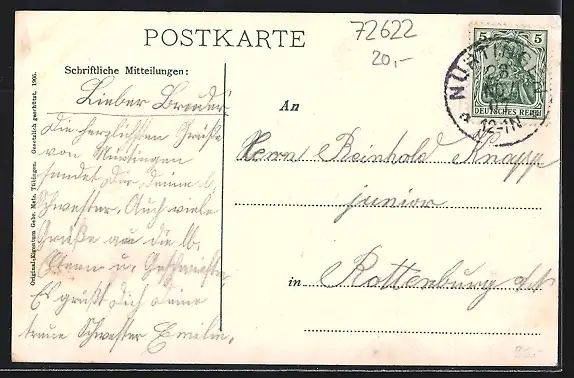 POSTKARTE
72622
20,-
5 5
DEUTSCHES REICH
NÜRTINGEN
28
12-1N
Schriftliche Mitteilungen:
Lieber Bruder
Die herzlichsten Grüße
von Nürtingen
sendet Dir Deine l.
Schwester. Auch viele
Grüße an die lb.
Eltern u. Geschwister.
Es grüßt Dich Deine
treue Schwester Emilie.
An
Herrn Reinhold Knapp
junior
in Rottenburg a/N
Original-Eigentum Gebr. Metz, Tübingen. Gesetzlich geschützt. 1905.